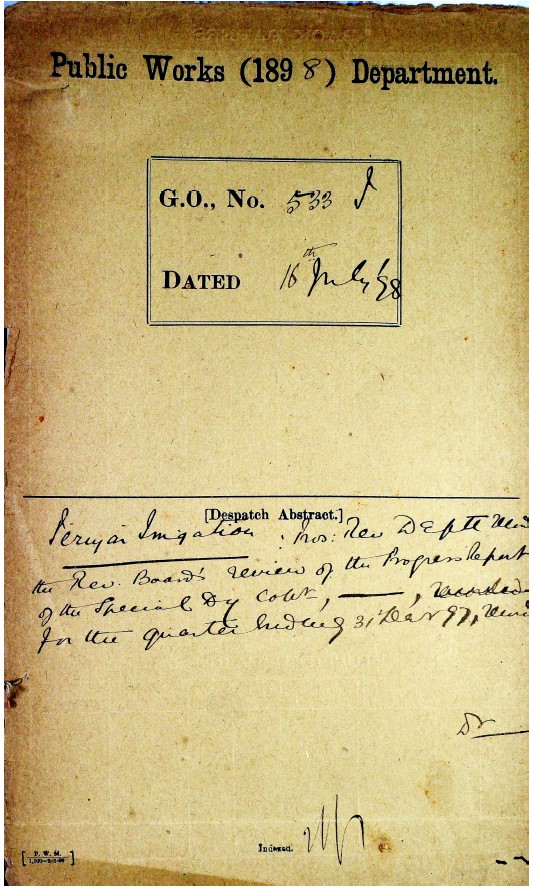 Public Works (1898) Department.
G.O., No. 533 I
DATED 16th July '98
[Despatch Abstract.]
Periyar Irrigation. Pros: Rev Deptt
the Rev. Board's review of the Progress Report
of the Special Dy Collr, ——,
for the quarter ending 31st Decr 97,
Indexed.
P. W. M.